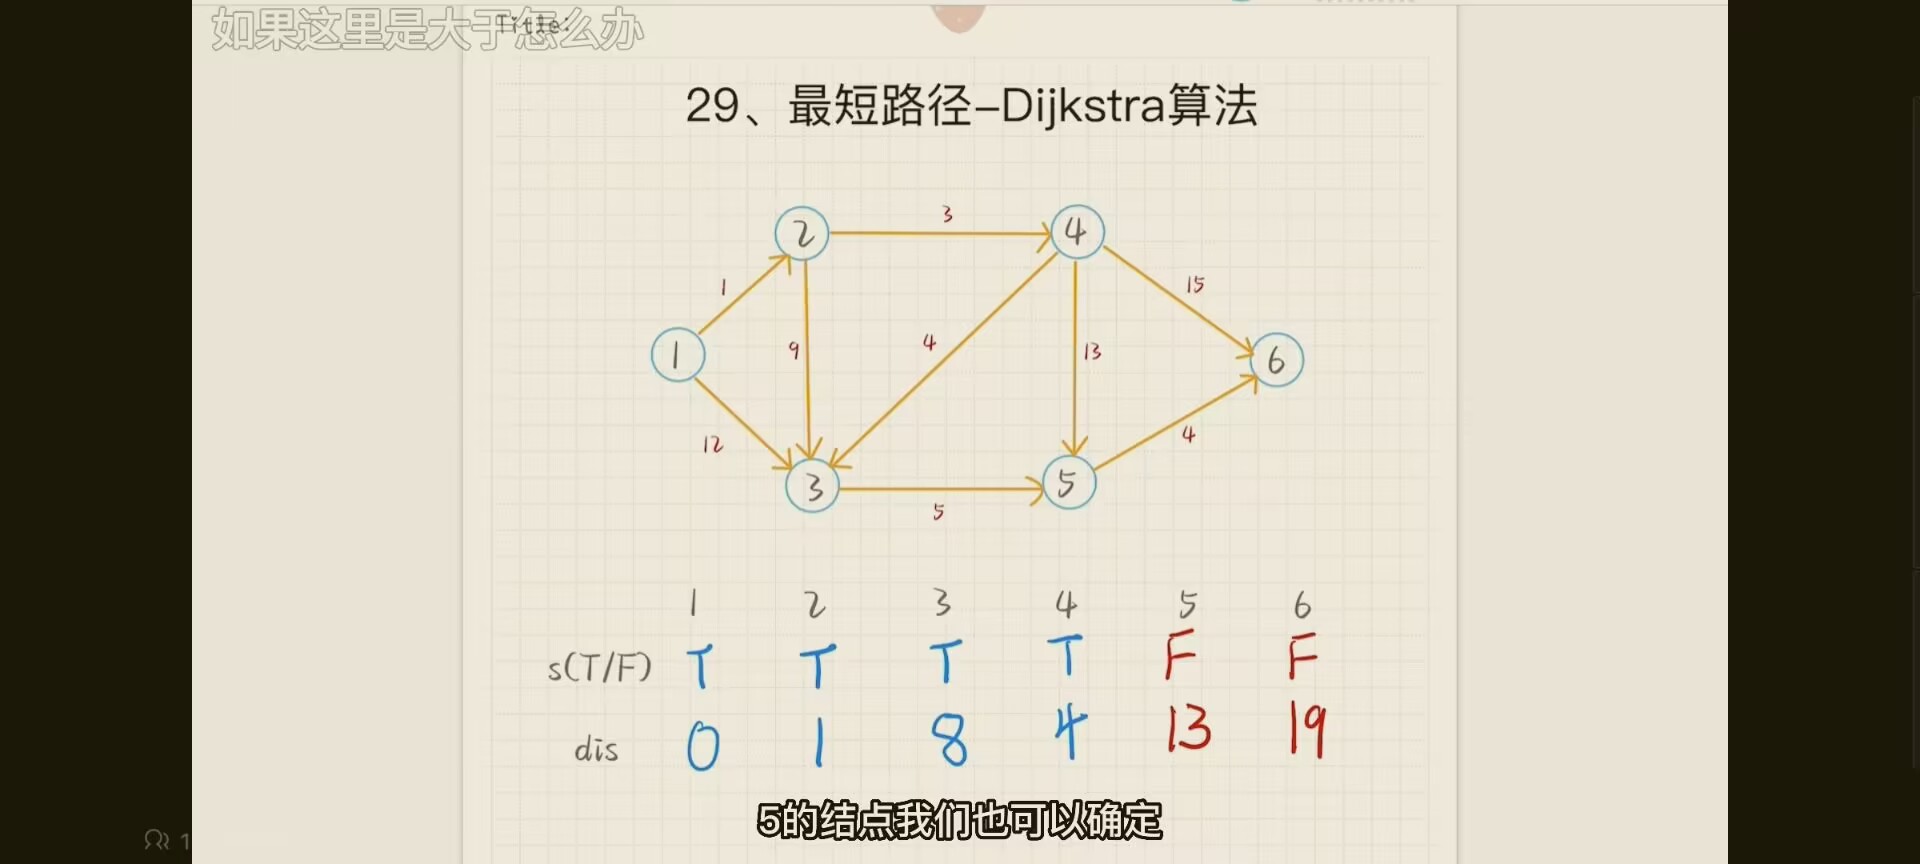 如果这里是大于怎么办
Title:
29、最短路径-Dijkstra算法
3
2
4
1
15
9
4
13
1
6
12
4
3
5
5
1 2 3 4 5 6
s(T/F) T T T T F F
dis 0 1 8 4 13 19
5的结点我们也可以确定
1